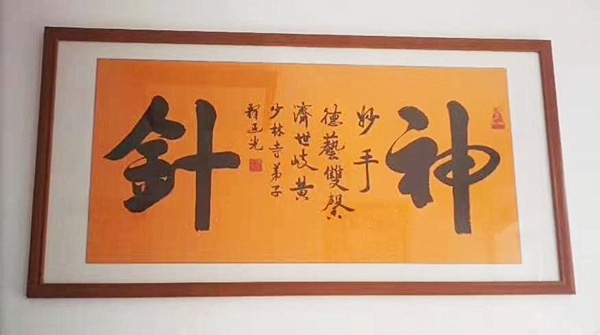 神針
妙手
德藝雙馨
濟世岐黃
少林寺弟子